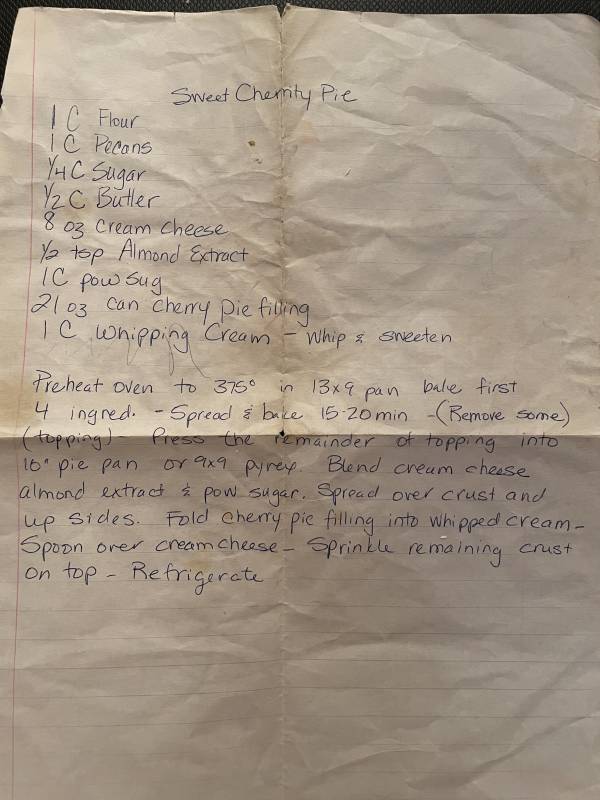 Sweet Cherrity Pie
1 C Flour
1 C Pecans
1/4 C Sugar
1/2 C Butter
8 oz cream cheese
1/2 tsp Almond Extract
1 C pow sug
21 oz can cherry pie filling
1 C Whipping Cream - Whip & sweeten
Preheat oven to 375° in 13x9 pan bake first
4 ingred. - Spread & bake 15-20 min - (Remove some)
(topping) - Press the remainder of topping into
10" pie pan or 9x9 pyrex. Blend cream cheese
almond extract & pow sugar. Spread over crust and
up sides. Fold cherry pie filling into whipped cream -
Spoon over creamcheese - Sprinkle remaining crust
on top - Refrigerate